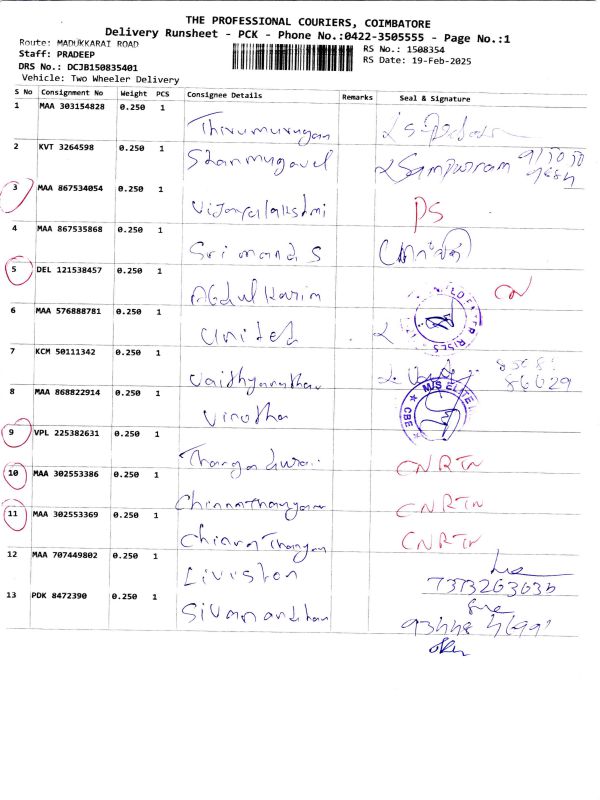 THE PROFESSIONAL COURIERS, COIMBATORE
Delivery Runsheet - PCK - Phone No.:0422-3505555 - Page No.:1
Route: MADUKKARAI ROAD
Staff: PRADEEP
DRS No.: DCJB150835401
Vehicle: Two Wheeler Delivery
RS No.: 1508354
RS Date: 19-Feb-2025
S No Consignment No Weight PCS Consignee Details Remarks Seal & Signature
1 MAA 303154828 0.250 1
Thirumurugan
2 KVT 3264598 0.250 1
Shanmugavel
3 MAA 867534054 0.250 1
Vijayalakshmi PS
4 MAA 867535868 0.250 1
Srimand S
5 DEL 121538457 0.250 1
Abdul Karim CN
6 MAA 576888781 0.250 1
United
7 KCM 50111342 0.250 1
Vaidhyanathan 86629
8 MAA 868822914 0.250 1
Vinotha M/S ELITE CBE
9 VPL 225382631 0.250 1
Thangadurai CNRTN
10 MAA 302553386 0.250 1
Chinnathangam CNRTN
11 MAA 302553369 0.250 1
Chinna Thangam CNRTN
12 MAA 707449802 0.250 1
Liviston
13 PDK 8472390 0.250 1
Sivanandhan